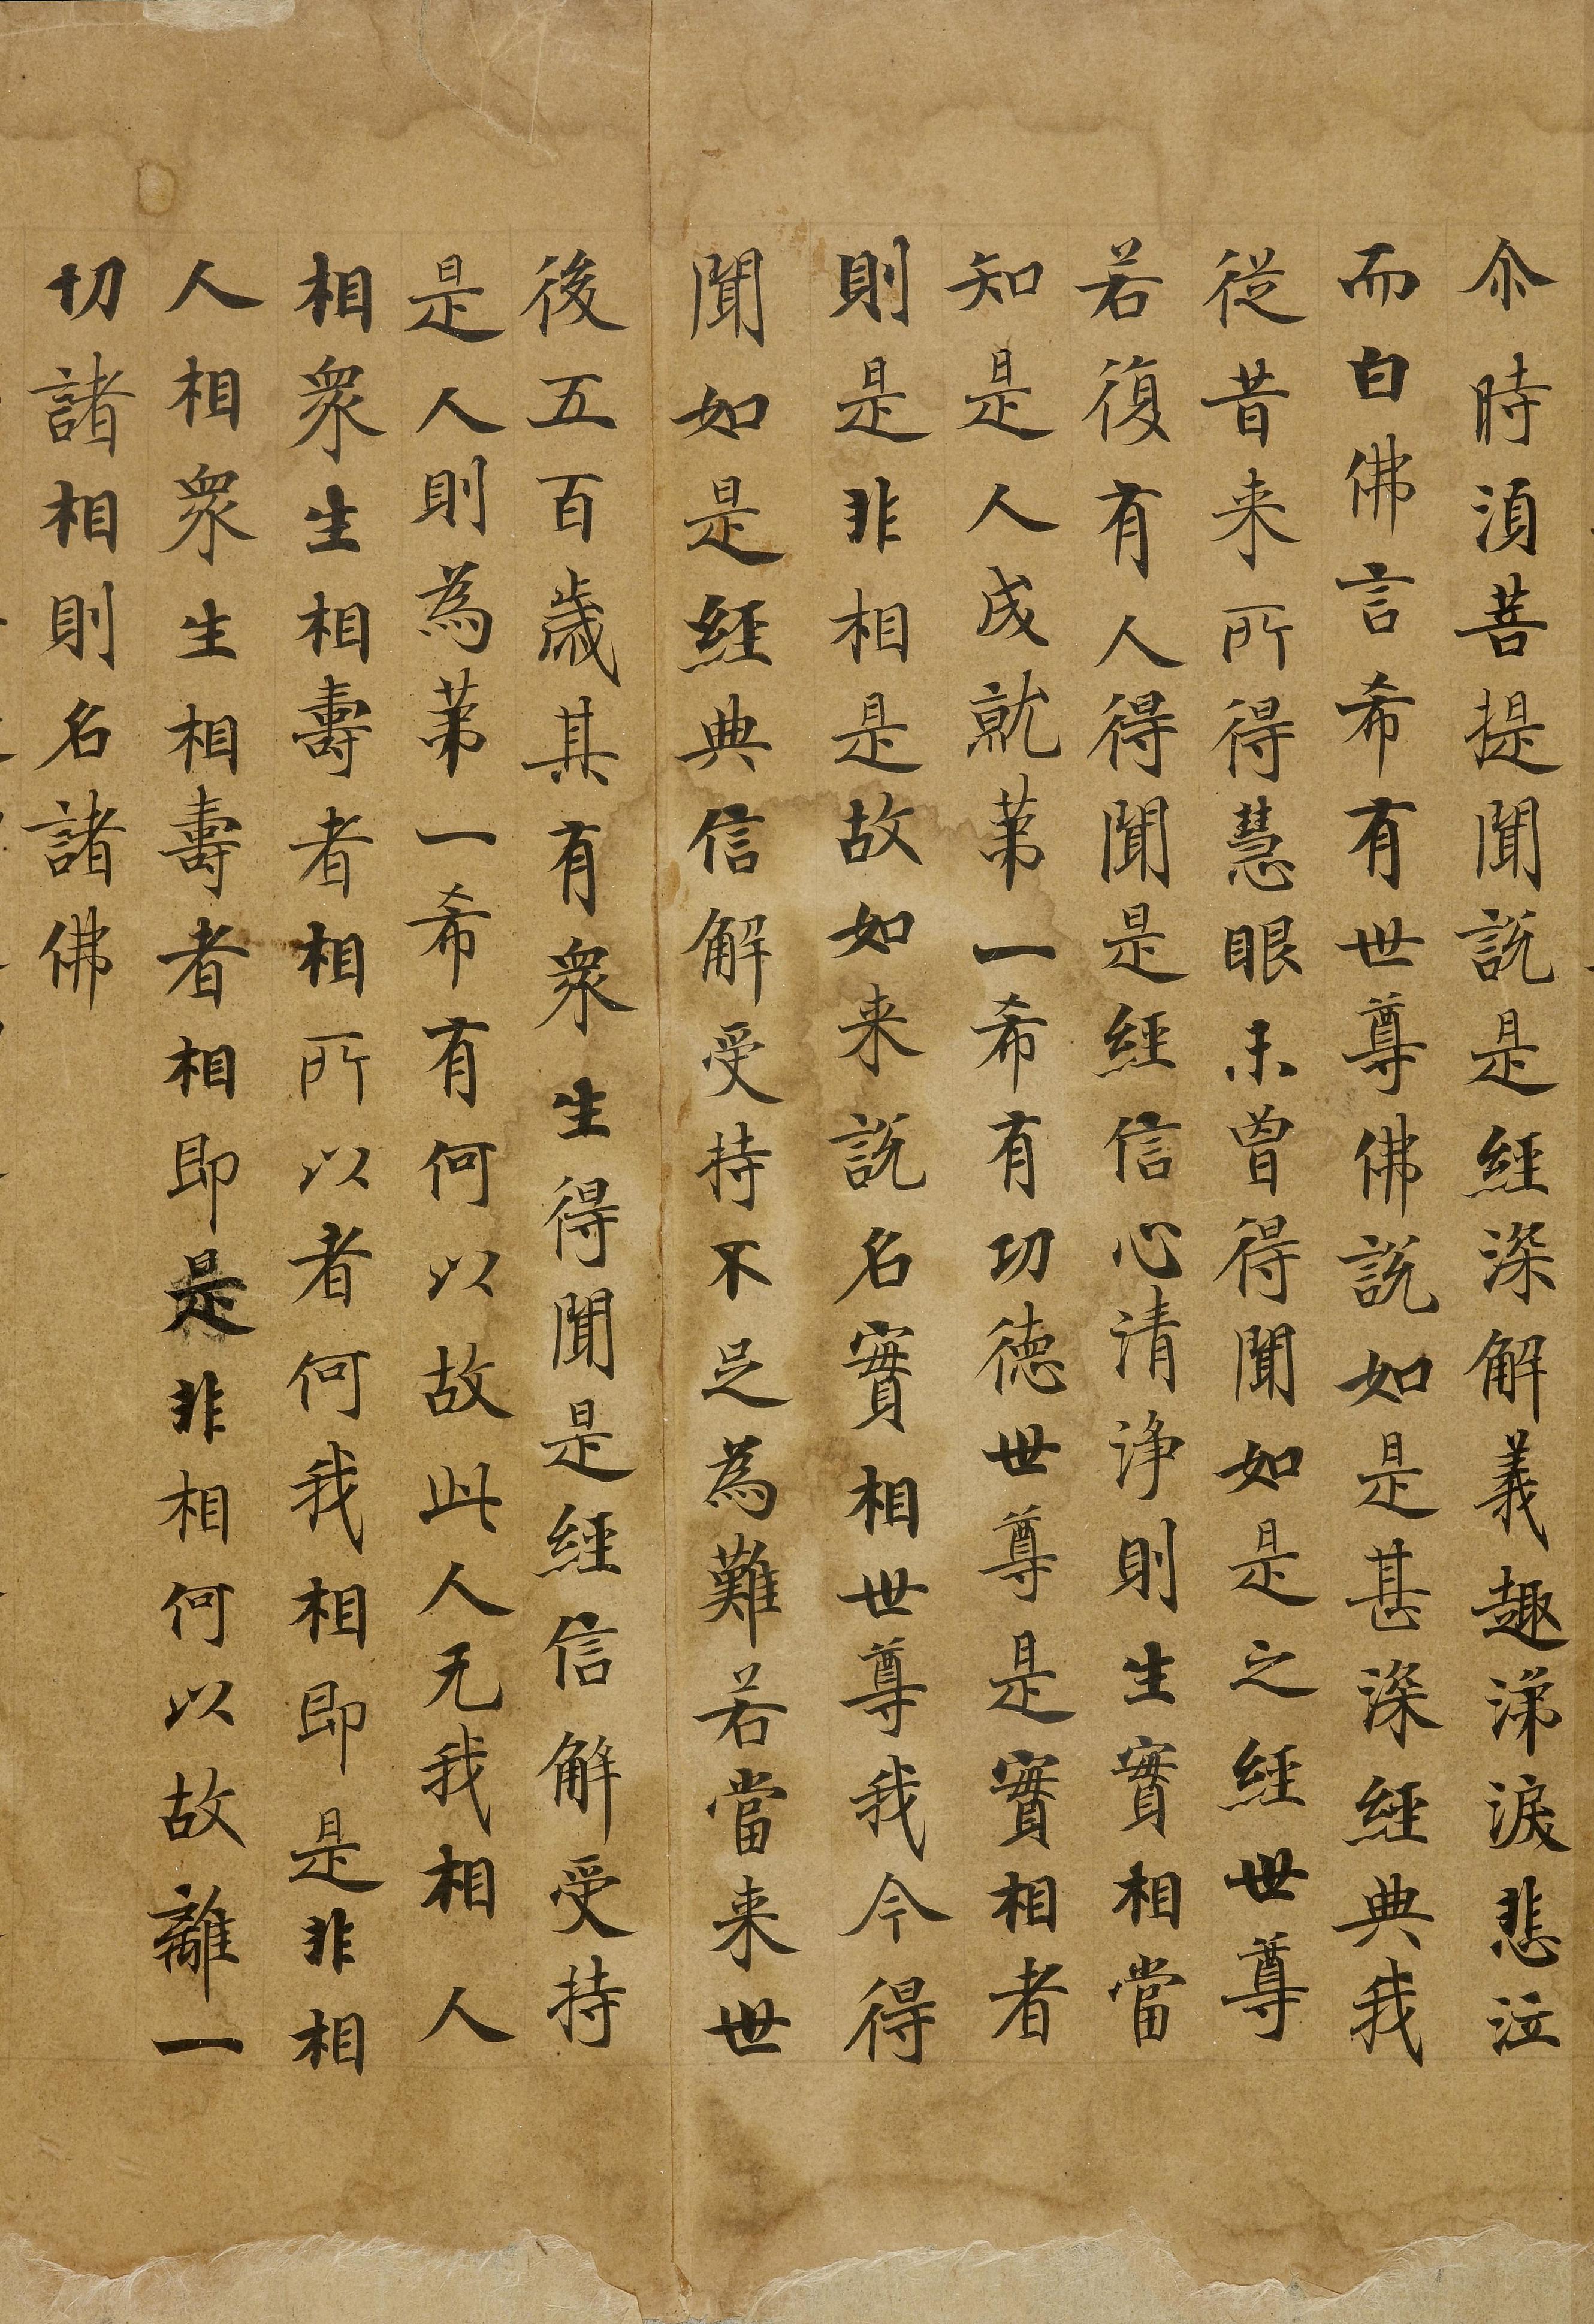 尒時湏菩提聞說是經深解義趣涕淚悲泣
而白佛言希有世尊佛說如是甚深經典我
從昔来所得慧眼未曾得聞如是之經世尊
若復有人得聞是經信心清淨則生實相當
知是人成就苐一希有功德世尊是實相者
則是非相是故如来說名實相世尊我今得
聞如是經典信解受持不足為難若當来世
後五百歲其有衆生得聞是經信解受持
是人則為苐一希有何以故此人无我相人
相衆生相壽者相所以者何我相即是非相
人相衆生相壽者相即是非相何以故離一
切諸相則名諸佛